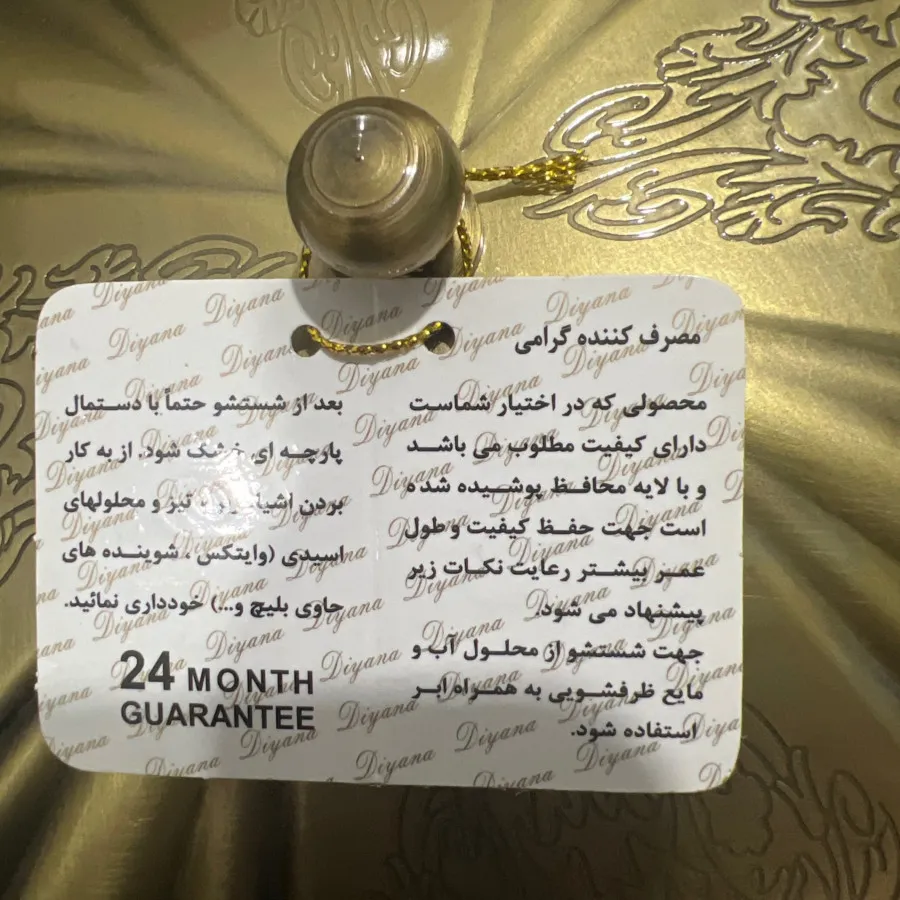 مصرف کننده گرامی
محصولی که در اختیار شماست
دارای کیفیت مطلوب می باشد
و با لایه محافظ پوشیده شده
است جهت حفظ کیفیت و طول
عمر بیشتر رعایت نکات زیر
پیشنهاد می شود.
جهت شستشو از محلول آب و
مایع ظرفشویی به همراه ابر
استفاده شود.
بعد از شستشو حتماً با دستمال
پارچه ای خشک شود. از به کار
بردن اشیا تیز و محلولهای
اسیدی (وایتکس ، شوینده های
حاوی بلیچ و...) خودداری نمائید.
24 MONTH
GUARANTEE
Diyana